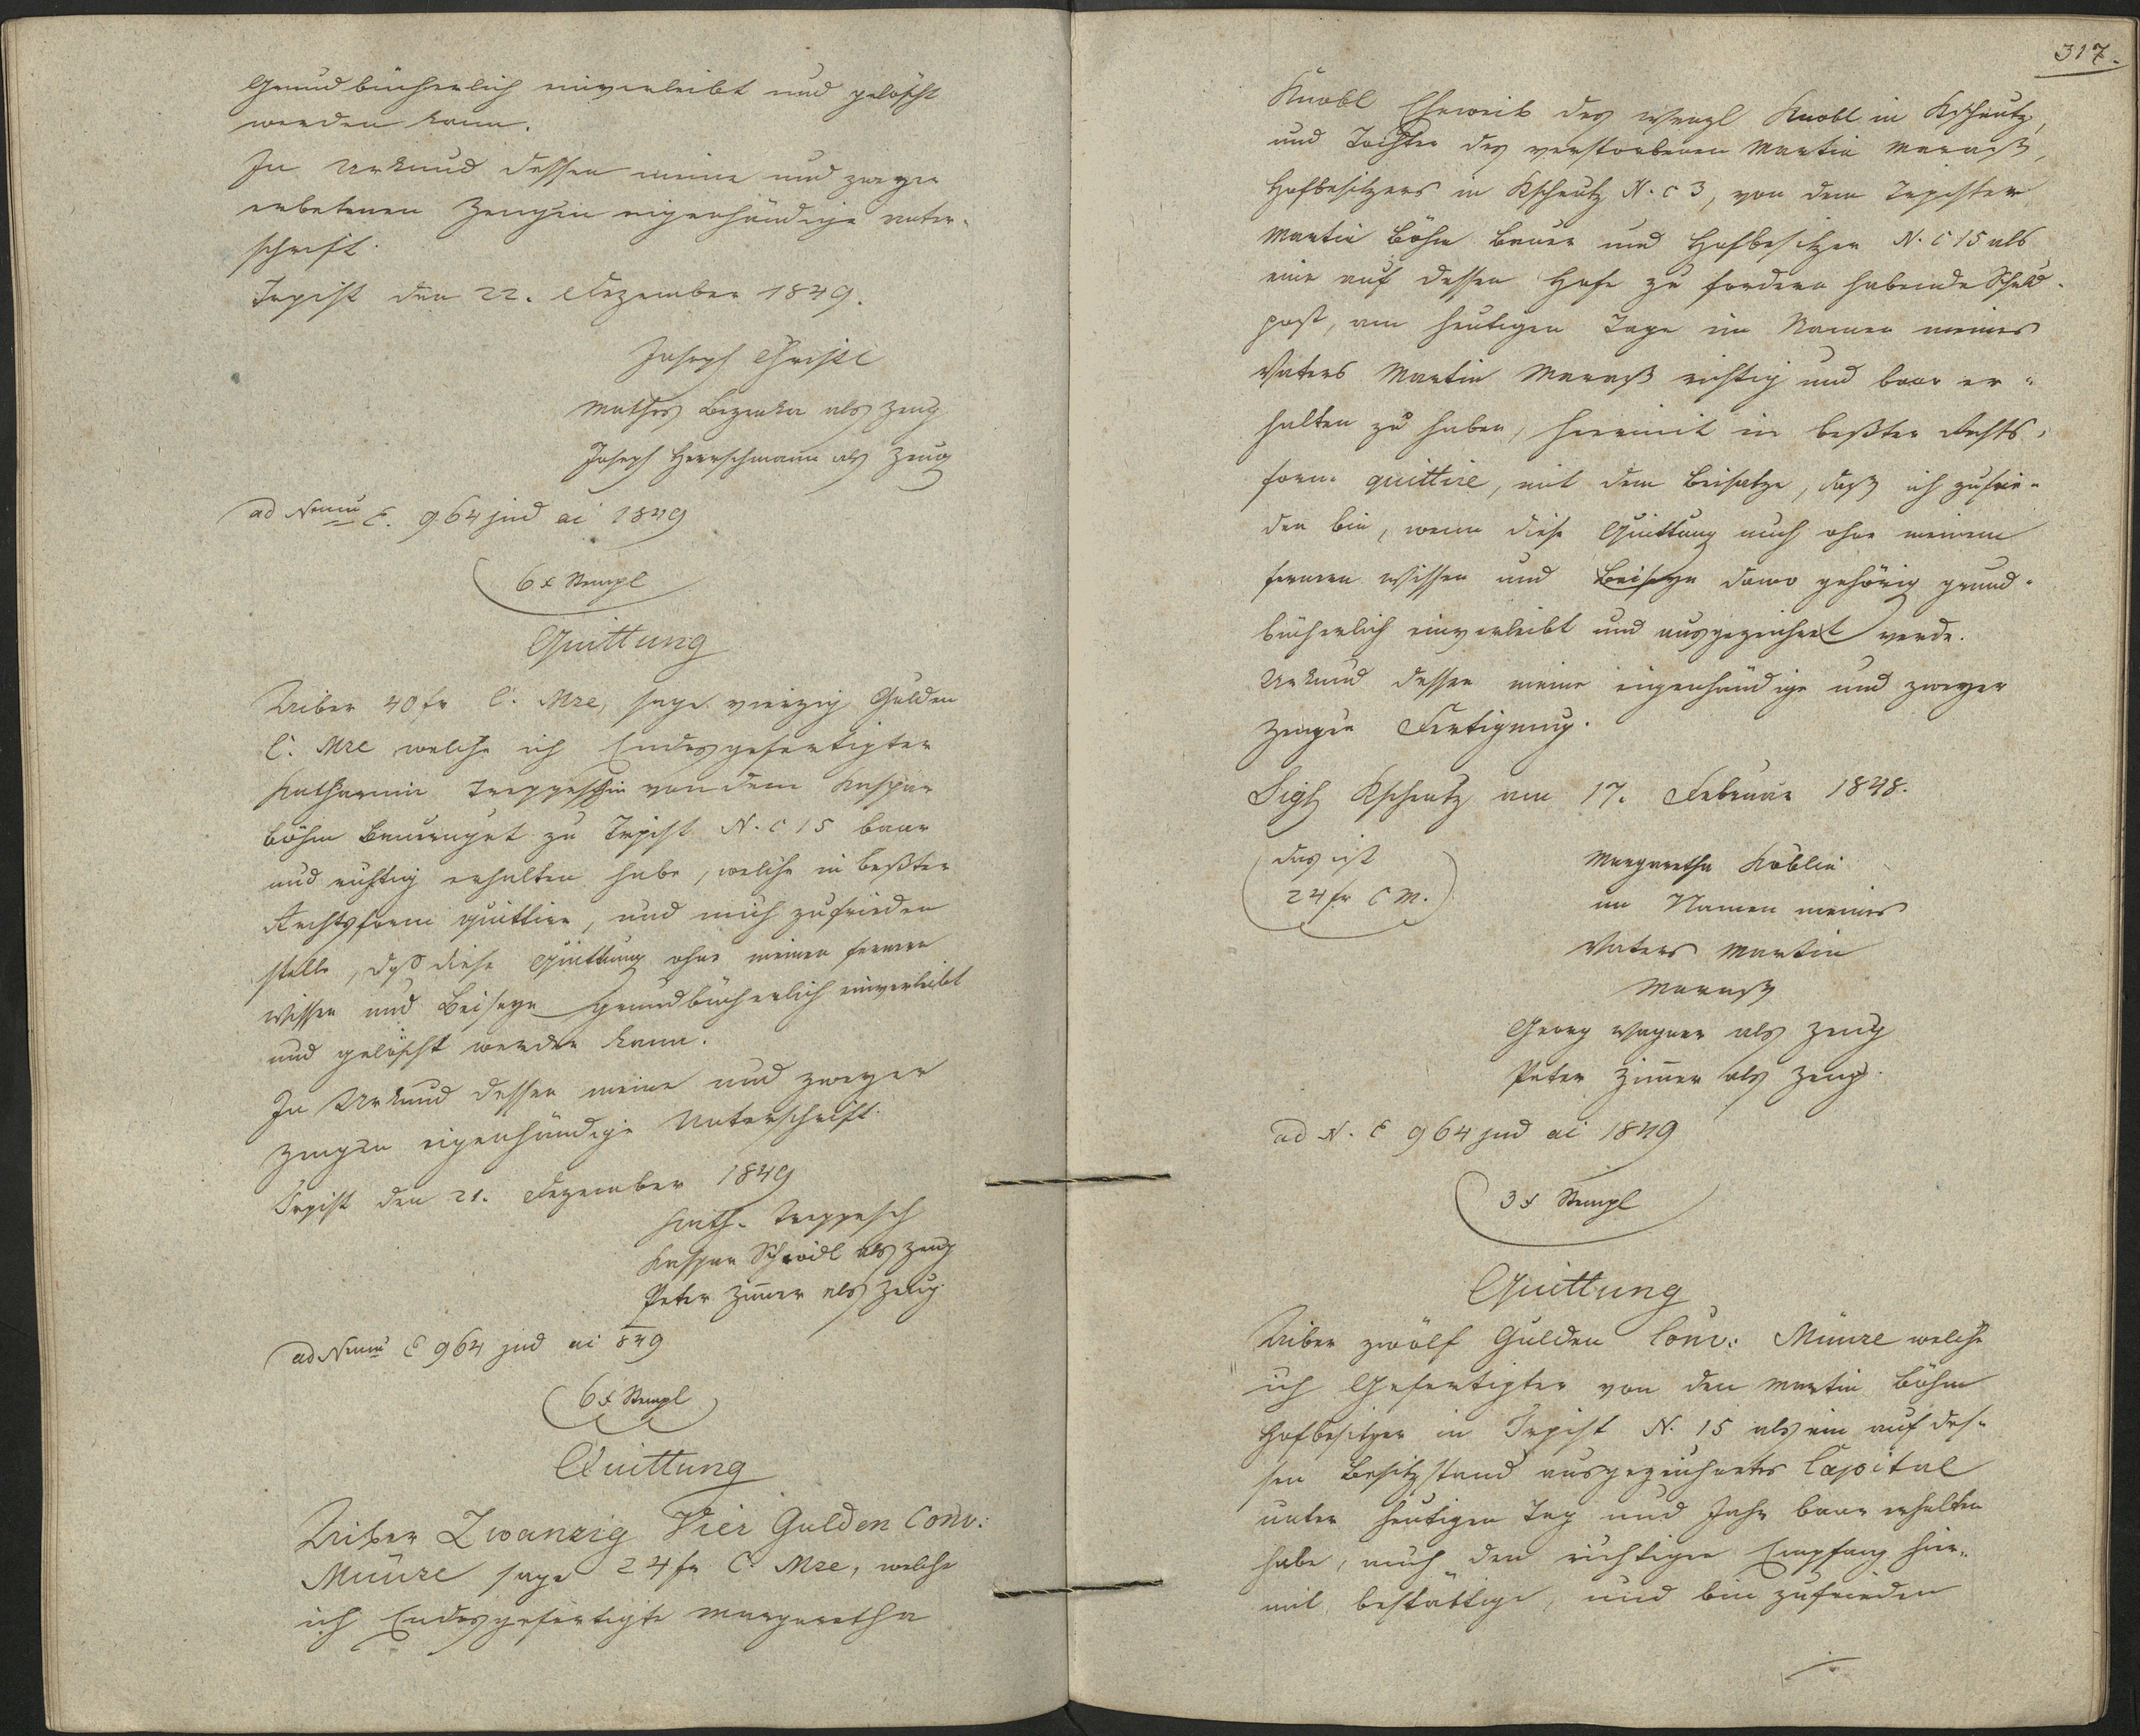 Grundbücherlich einverleibt und gelöscht
werden kann.
In Urkund dessen meine und zweyer
erbetenen Zeugen eigenhändige Unter-
schrift.
Trpist den 22. Dezember 1849.
Joseph Christl
Mathes Bezecka als Zeug
Joseph Herrschmann als Zeug
ad Num E. 964 jud ai 1849
6 x Stempl
Quittung
Uiber 40 fr C. Mze, sage vierzig Gulden
C. Mze welche ich Endesgefertigter
Katharina Treppeschin von dem Kaspar
Böhm Bauerngut zu Trpist N. C 15 baar
und richtig erhalten habe, welche in beßter
Rechtsform quittire, und mich zufrieden
stelle, daß diese Quittung ohne meinen fernern
Wissen und Beiseyn grundbücherlich einverleibt
und gelöscht werden kann.
In Urkund dessen meine und zweyer
Zeugen eigenhändige Unterschrift.
Trpist den 21. Dezember 1849
Kath. Treppesch
Kaspar Schrödl als Zeug
Peter Zimer als Zeug
ad Num E 964 jud ai 849
6 x Stempl
Quittung
Uiber Zwanzig Vier Gulden Conv:
Münze sage 24 fr C. Mze, welche
ich Endesgefertigte Margaretha
317.
Knobl Eheweib des Wenzl Knobl in Kscheutz,
und Tochter des verstorbenen Martin Marasch,
Hofbesitzers in Kscheutz N. C 3, von dem Trpister
Martin Böhm Bauer und Hofbesitzer N. C 15 als
eine auf dessen Hofe zu fordern habende Schuld-
post, am heutigen Tage im Namen meines
Vaters Martin Marasch richtig und baar er-
halten zu haben, hiermit in beßter Rechts-
form quittire, mit dem Beisatze, daß ich zufrie-
den bin, wenn diese Quittung auch ohne meinem
fernern Wissen und Beiseyn dawo gehörig grund-
bücherlich einverleibt und ausgezeichnet werde.
Urkund dessen meine eigenhändige und zweyer
Zeugen Fertigung.
Sigl Kscheutz am 17. Februar 1848.
das ist
24 fr C M.
Margaretha Koblin
im Namen meines
Vaters Martin
Marasch
Georg Wagner als Zeug
Peter Zimer als Zeug.
ad N. E 964 jud ai 1849
3 x Stempl
Quittung
Uiber zwölf Gulden Conv: Münze welche
ich Gefertigter von den Martin Böhm
Hofbesitzer in Trpist N. 15 als ein auf des-
sen Besitzstand ausgezeichnetes Capital
unter heutigen Tag und Jahr baar erhalten
habe, auch den richtigen Empfang hier-
mit bestättige, und bin zufrieden